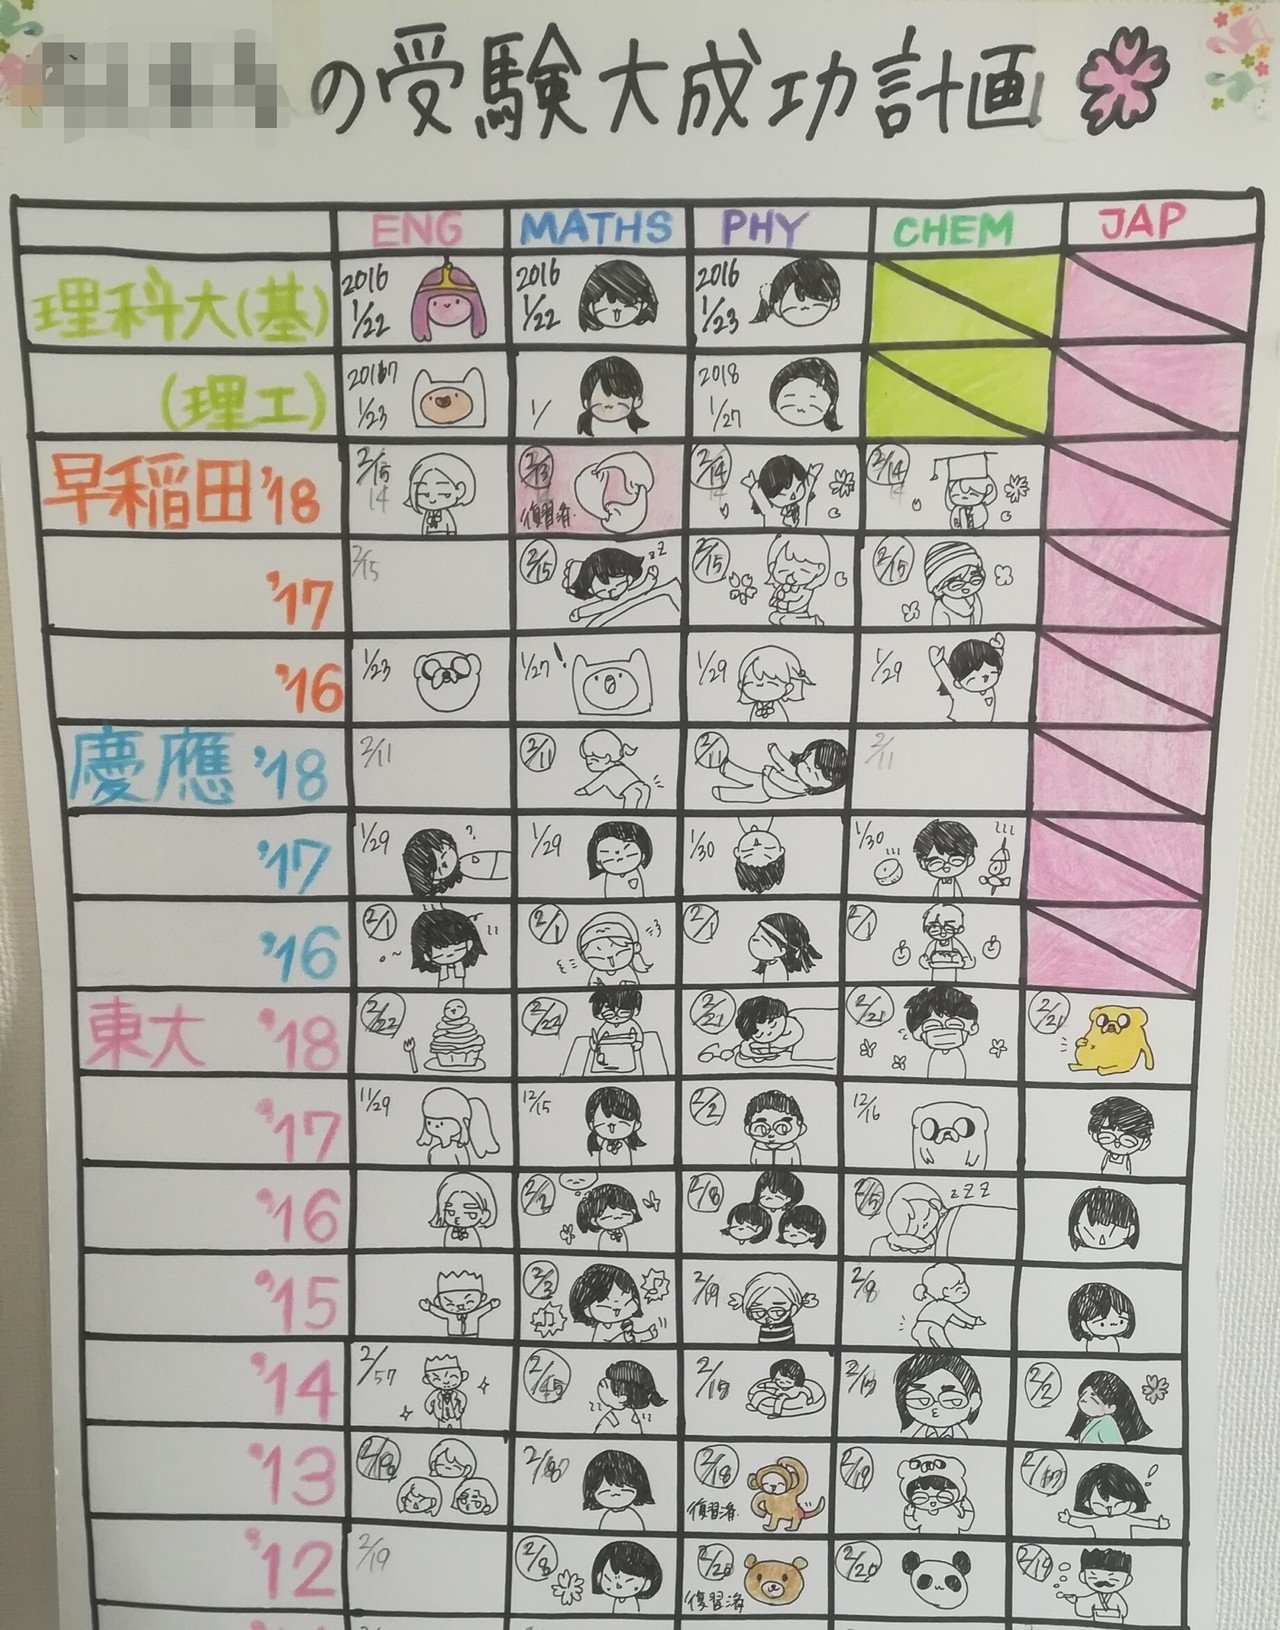 の受験大成功計画
ENG MATHS PHY CHEM JAP
理科大(基) 2016 1/22 2016 1/22 2016 1/23
(理工) 2017 1/23 1/ 2018 1/27
早稲田 '18 2/15 14 2/13 復習済. 2/14 14 2/14 14
'17 2/15 2/15 zZ 2/15 2/15
'16 1/23 1/27 ! 1/29 1/29
慶應 '18 2/11 2/11 2/11 2/11
'17 1/29 ? 1/29 1/30 1/30
'16 2/1 2/1 2/1 2/1
東大 '18 2/22 2/22 2/21 2/21 2/21
'17 11/29 12/15 2/2 12/16
'16 2/2 2/8 2/5 zZZ
'15 2/2 2/19 2/8
'14 2/15 2/2
'13 2/18 復習済. 2/19 !
'12 2/19 2/8 2/20 復習済 2/20 2/19